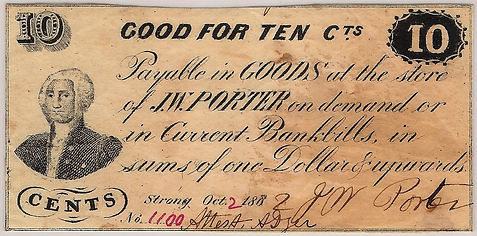 10 GOOD FOR TEN CTS 10
Payable in GOODS at the store
of J.W.PORTER on demand or
in Current Bankbills, in
sums of one Dollar & upwards.
CENTS
Strong, Oct. 2 188 J W Porter
No. 1100 Attest,